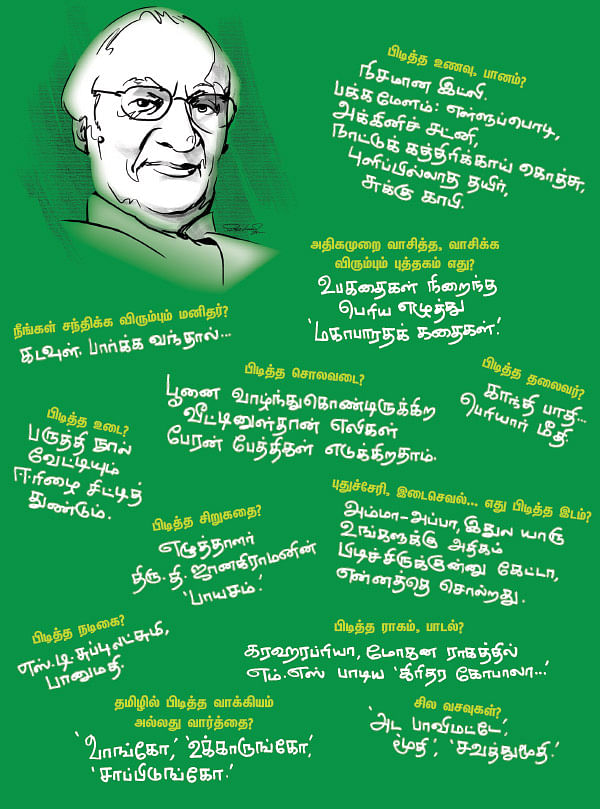 பிடித்த உணவு, பானம்?
நிசமான இட்லி.
பக்கமேளம்: எள்ளுப்பொடி,
அக்கினிச் சட்னி,
நாட்டுக் கத்திரிக்காய் கொத்சு,
புளிப்பில்லாத தயிர்,
சுக்கு காபி.
அதிகமுறை வாசித்த, வாசிக்க
விரும்பும் புத்தகம் எது?
உபகதைகள் நிறைந்த
பெரிய எழுத்து
‘மகாபாரதக் கதைகள்’.
நீங்கள் சந்திக்க விரும்பும் மனிதர்?
கடவுள். பார்க்க வந்தால்...
பிடித்த சொலவடை?
பூனை வாழ்ந்துகொண்டிருக்கிற
வீட்டினுள்தான் எலிகள்
பேரன் பேத்திகள் எடுக்கிறதாம்.
பிடித்த தலைவர்?
காந்தி பாதி...
பெரியார் மீதி.
பிடித்த உடை?
பருத்தி நூல்
வேட்டியும்
ஈரிழை சிட்டித்
துண்டும்.
புதுச்சேரி, இடைசெவல்... எது பிடித்த இடம்?
அம்மா-அப்பா, இதுல யாரு
உங்களுக்கு அதிகம்
பிடிச்சிருக்குன்னு கேட்டா,
என்னத்தை சொல்றது.
பிடித்த சிறுகதை?
எழுத்தாளர்
திரு. தி. ஜானகிராமனின்
‘பாயசம்.’
பிடித்த நடிகை?
எஸ்.டி.சுப்புலட்சுமி,
பானுமதி.
பிடித்த ராகம், பாடல்?
கரஹரப்ரியா, மோகன ராகத்தில்
எம்.எஸ் பாடிய ‘கிரிதர கோபாலா...’
தமிழில் பிடித்த வாக்கியம்
அல்லது வார்த்தை?
‘வாங்கோ,’ ‘உக்காருங்கோ,’
‘சாப்பிடுங்கோ.’
சில வசவுகள்?
‘அட பாவிமட்டே’,
‘மூதி’, ‘சவத்துமூதி.’